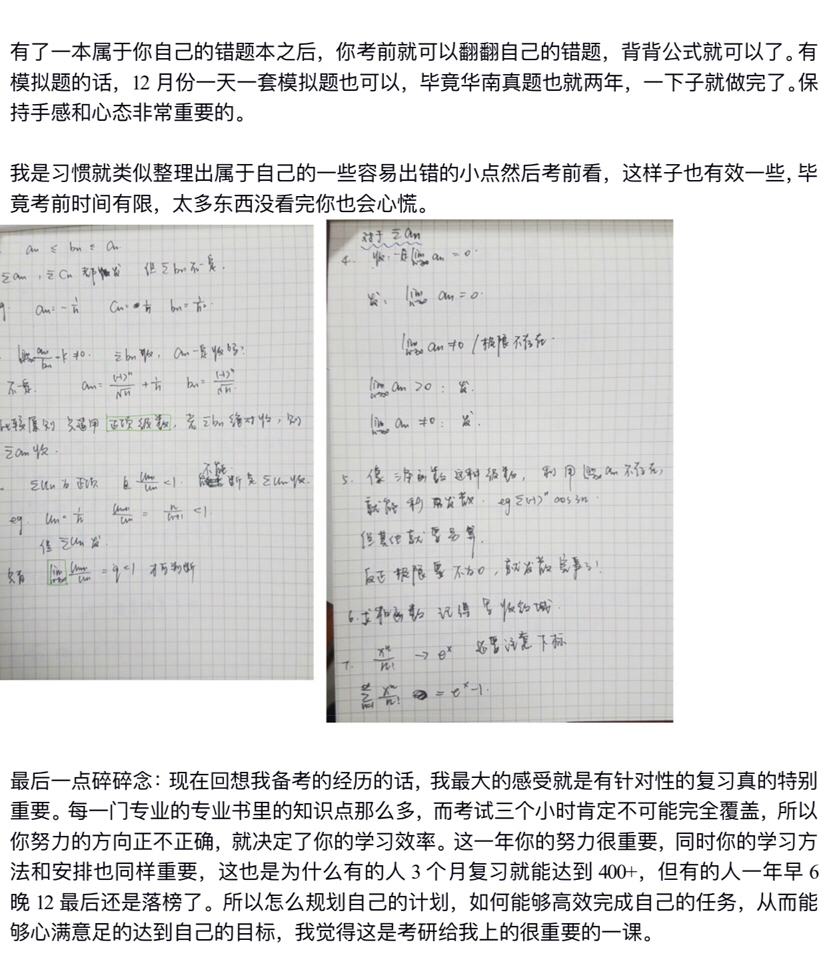 有了一本属于你自己的错题本之后，你考前就可以翻翻自己的错题，背背公式就可以了。有
模拟题的话，12 月份一天一套模拟题也可以，毕竟华南真题也就两年，一下子就做完了。保
持手感和心态非常重要的。
我是习惯就类似整理出属于自己的一些容易出错的小点然后考前看，这样子也有效一些，毕
竟考前时间有限，太多东西没看完你也会心慌。
Σan，ΣCn 但Σbn不一定.
an=-1/n Cn=1/n bn=1/n²
不一定. an=(-1)^n/√n+1/n bn=(-1)^n/√n
只适用 正项级数，若Σbn绝对收，则
Σan收.
ΣUn为正项 且 Un+1/Un<1. 不能断定ΣUn收.
eg. Un=1/n Un+1/Un = n/n+1 <1
但ΣUn发.
只有 lim Un+1/Un = q<1 才可判断
对于Σan
4. 收：一定 lim an=0.
发：lim an=0.
lim an≠0 / 极限不存在.
lim an>0：发.
lim an≠0：发.
5. 像三角函数这种级数，利用 lim an 不存在，
就能判 发散. eg Σ(-1)^n cos3n.
反正极限要不为0，就发散完事了！
6. 求和函数 记得写收敛域.
7. x^n/n! → e^x 还要注意下标
Σ x^n/n! = e^x-1.
最后一点碎碎念：现在回想我备考的经历的话，我最大的感受就是有针对性的复习真的特别
重要。每一门专业的专业书里的知识点那么多，而考试三个小时肯定不可能完全覆盖，所以
你努力的方向正不正确，就决定了你的学习效率。这一年你的努力很重要，同时你的学习方
法和安排也同样重要，这也是为什么有的人 3 个月复习就能达到 400+，但有的人一年早 6
晚 12 最后还是落榜了。所以怎么规划自己的计划，如何能够高效完成自己的任务，从而能
够心满意足的达到自己的目标，我觉得这是考研给我上的很重要的一课。